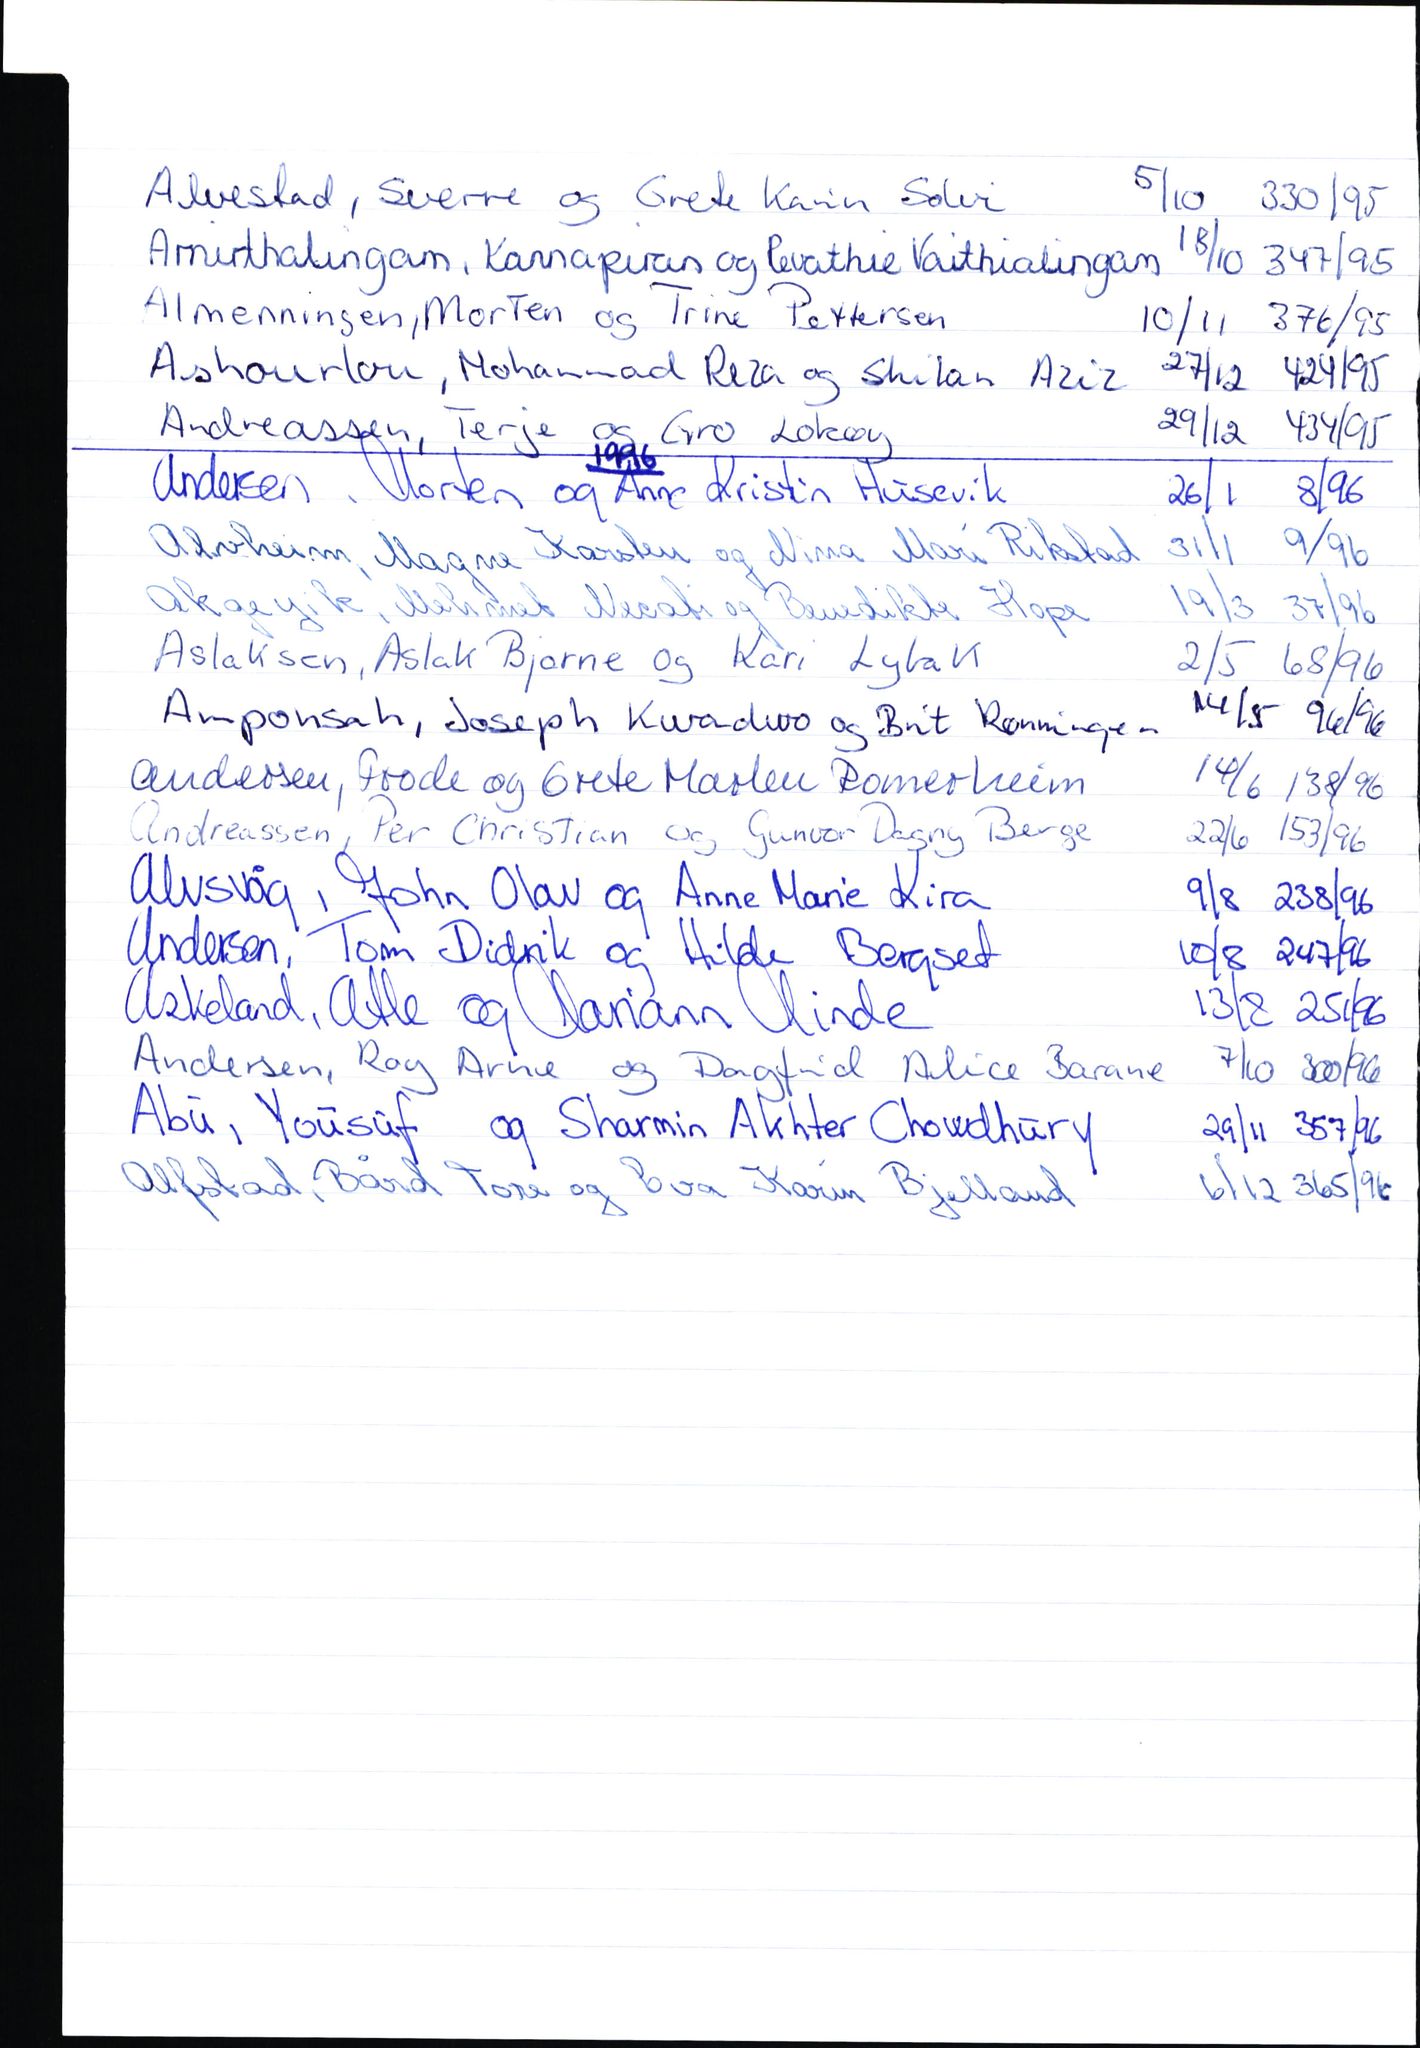 Alvestad, Sverre og Grete Karin Solvi 5/10 330/95
Amirthalingam, Kannapiran og Revathie Vaithialingam 18/10 347/95
Almenningen, Morten og Trine Pettersen 10/11 376/95
Ashourlou, Mohammad Reza og Shilan Aziz 27/12 424/95
Andreassen, Terje og Gro Lokøy 29/12 434/95
1996
Andersen, Morten og Anne Kristin Husevik 26/1 8/96
Alvheim, Magne Karsten og Nina Mari Rikstad 31/1 9/96
Akgeyik, Mehmet Necati og Benedikte Hope 19/3 37/96
Aslaksen, Aslak Bjarne og Kari Lybak 2/5 68/96
Amponsah, Joseph Kwadwo og Brit Rønningen 14/5 96/96
Andersen, Frode og Grete Marlen Romerheim 14/6 138/96
Andreassen, Per Christian og Gunvor Dagny Berge 22/6 153/96
Alvsvåg, John Olav og Anne Marie Kira 9/8 238/96
Andersen, Tom Didrik og Hilde Bergset 10/8 247/96
Askeland, Atle og Mariann Minde 13/8 251/96
Andersen, Roy Arne og Dagfrid Alice Barane 7/10 300/96
Abu, Yousuf og Sharmin Akhter Chowdhury 29/11 357/96
Alfstad, Bård Tore og Eva Karin Bjelland 6/12 365/96